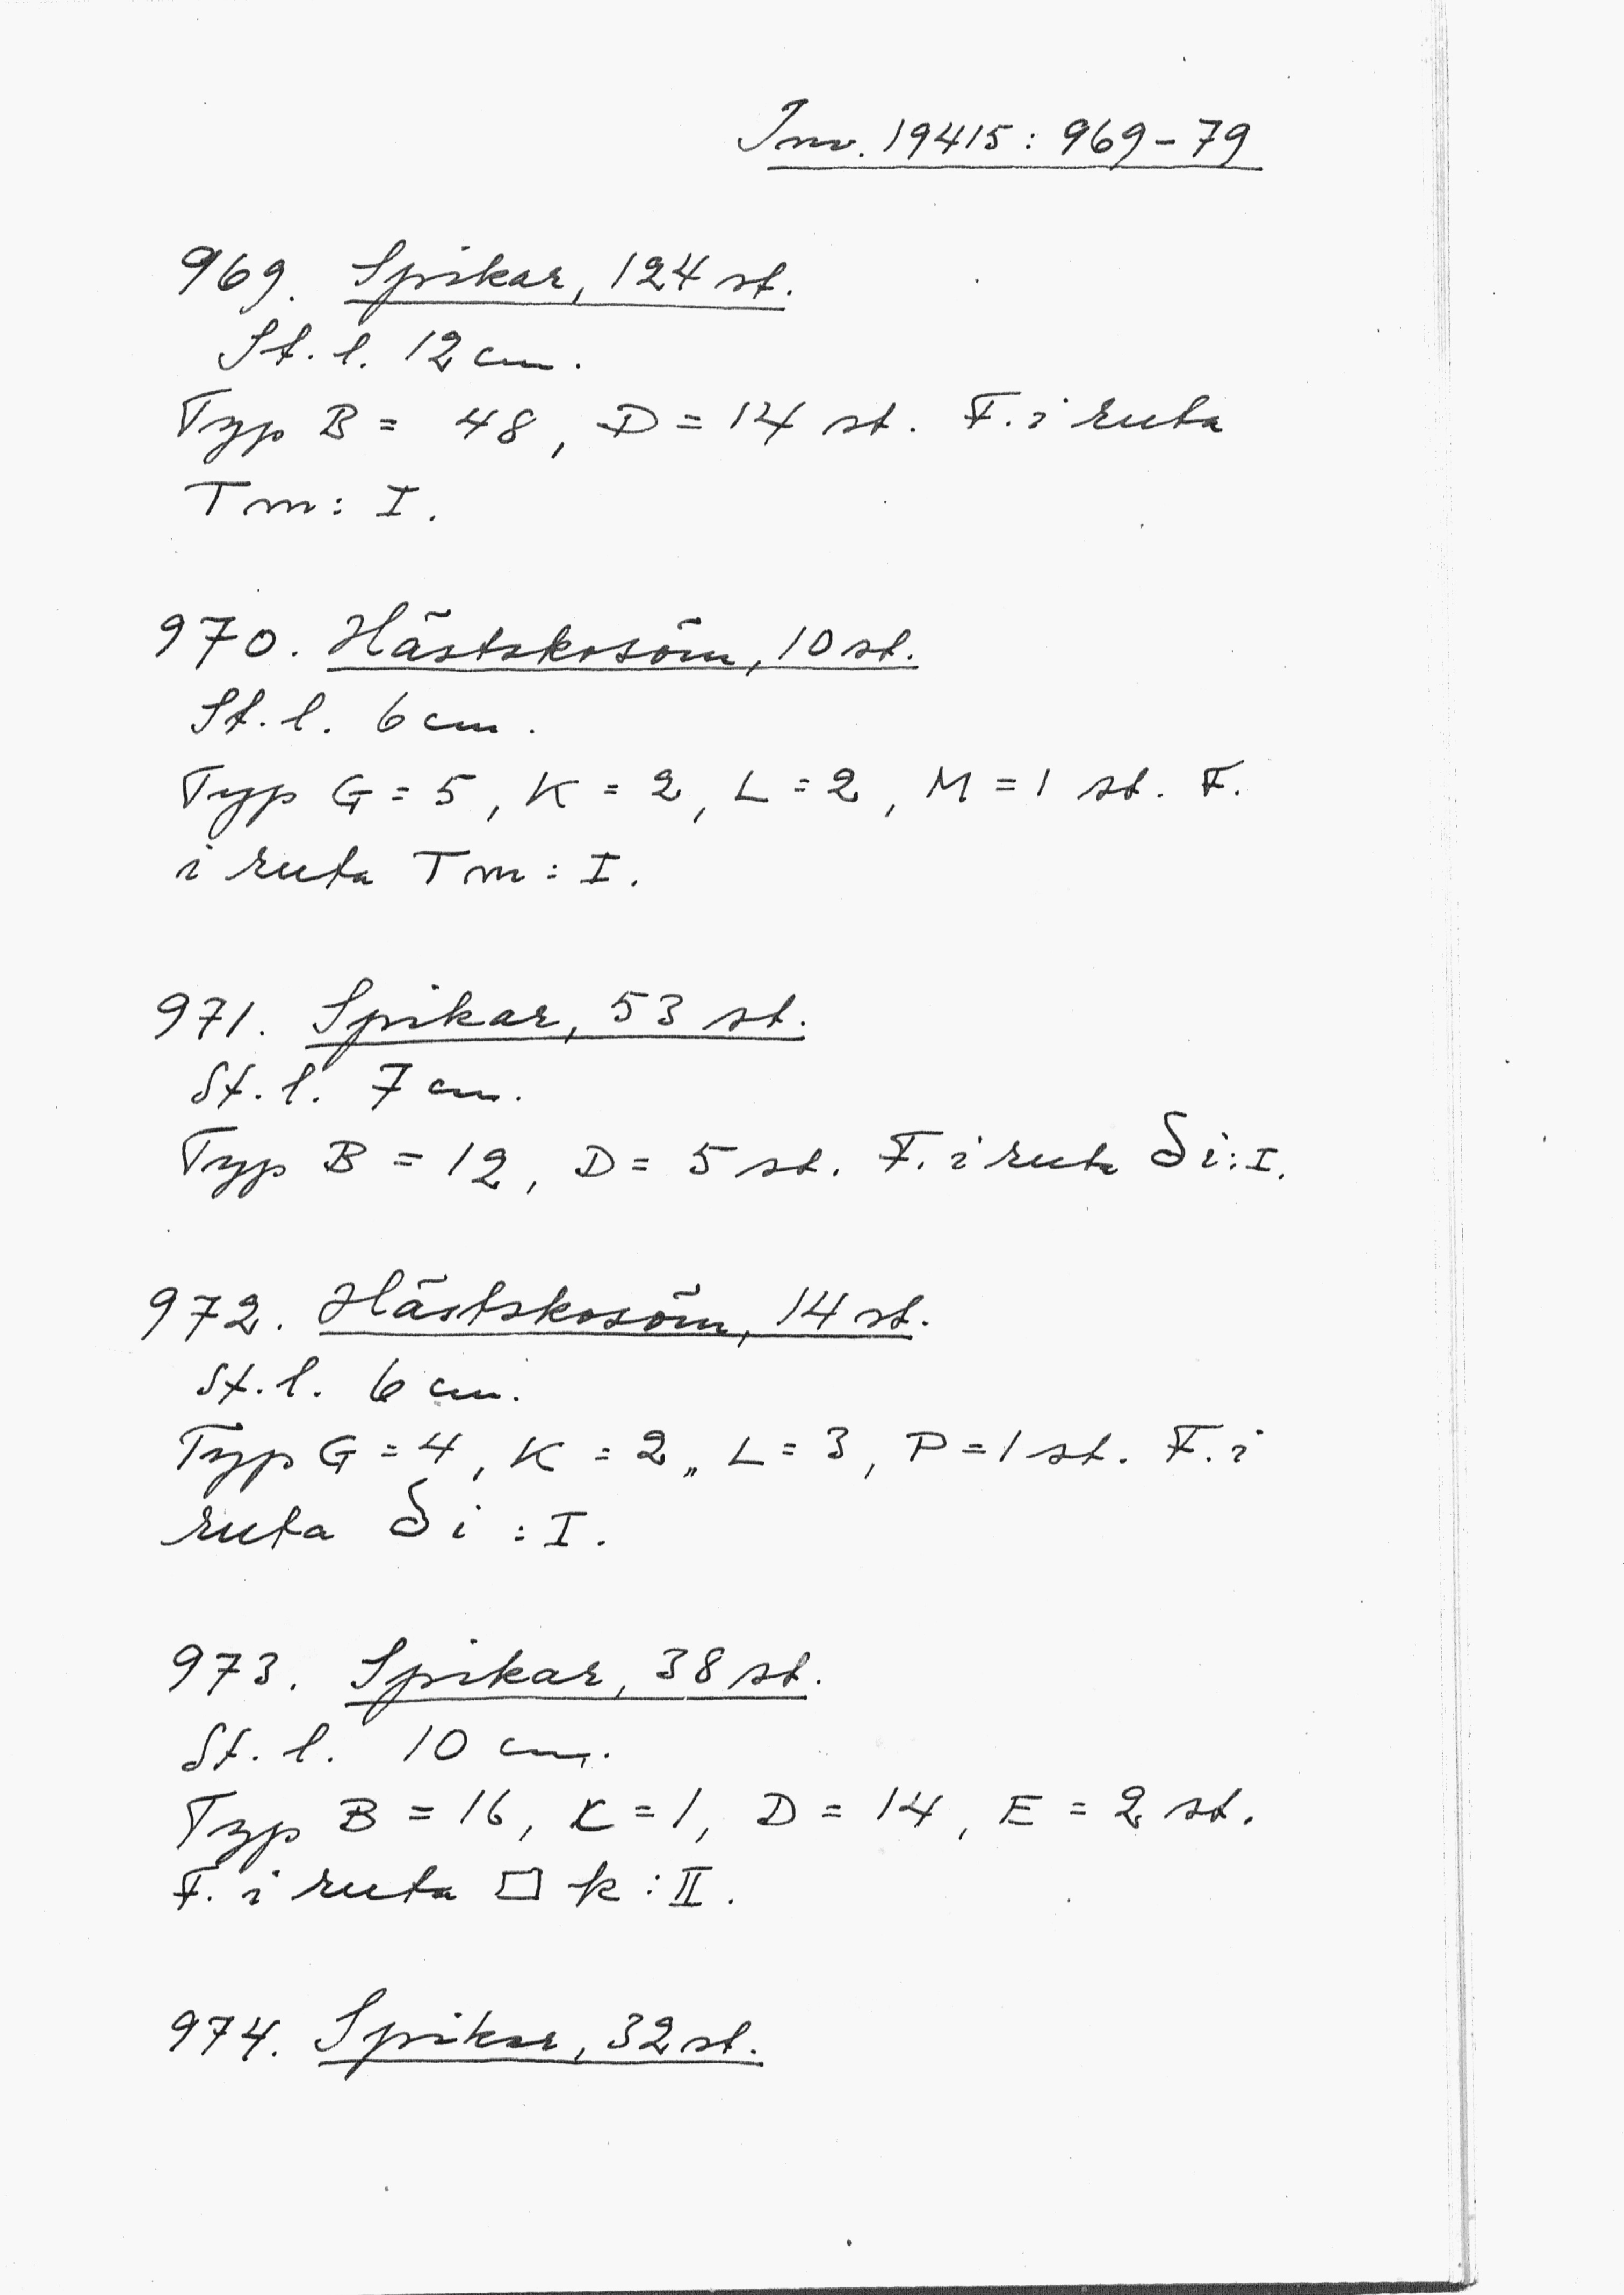 Inv. 19415: 969-79
969. Spikar, 124 st.
St. l. 12 cm.
Typ B = 48, D = 14 st. F. i ruta
Tm: I.
970. Hästskosöm, 10 st.
St. l. 6 cm.
Typ G = 5, K = 2, L = 2, M = 1 st. F.
i ruta Tm: I.
971. Spikar, 53 st.
St. l. 7 cm.
Typ B = 12, D = 5 st. F. i ruta Si: I.
972. Hästskosöm, 14 st.
St. l. 6 cm.
Typ G = 4, K = 2,, L = 3, P = 1 st. F. i
ruta Si: I.
973. Spikar, 38 st.
St. l. 10 cm.
Typ B = 16, K = 1, D = 14, E = 2 st.
F. i ruta □ k: II.
974. Spikar, 32 st.